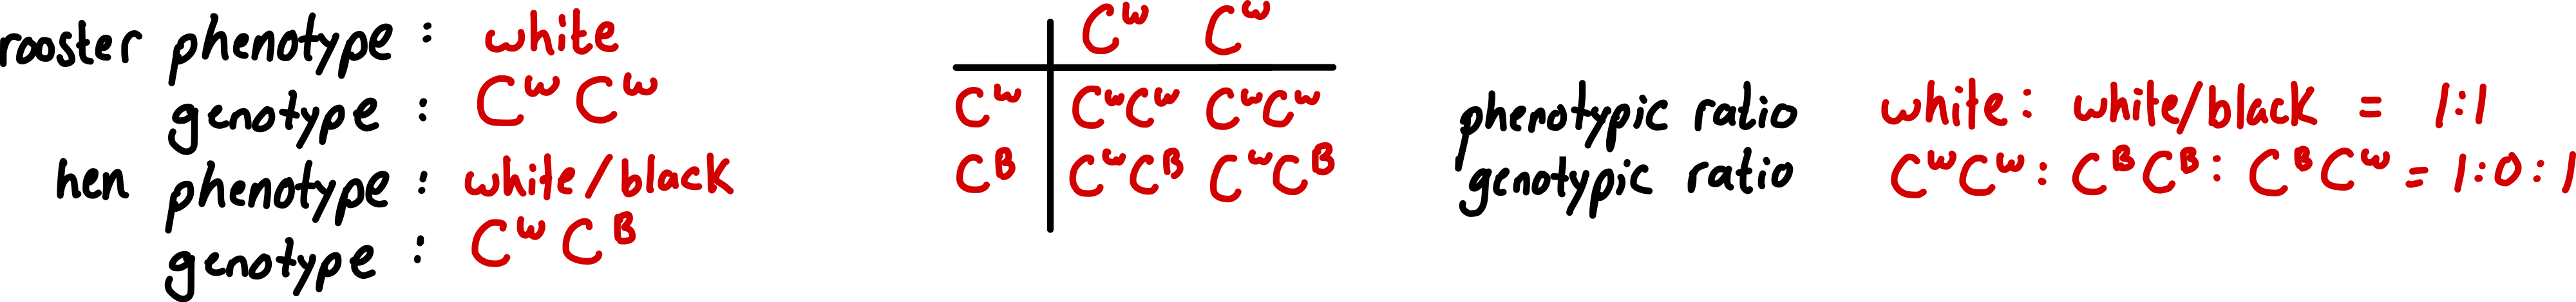 rooster phenotype : white
genotype : C^W C^W
hen phenotype : white/black
genotype : C^W C^B
C^W C^W
C^W C^WC^W C^WC^W
C^B C^WC^B C^WC^B
phenotypic ratio white : white/black = 1:1
genotypic ratio C^WC^W : C^BC^B : C^BC^W = 1:0:1